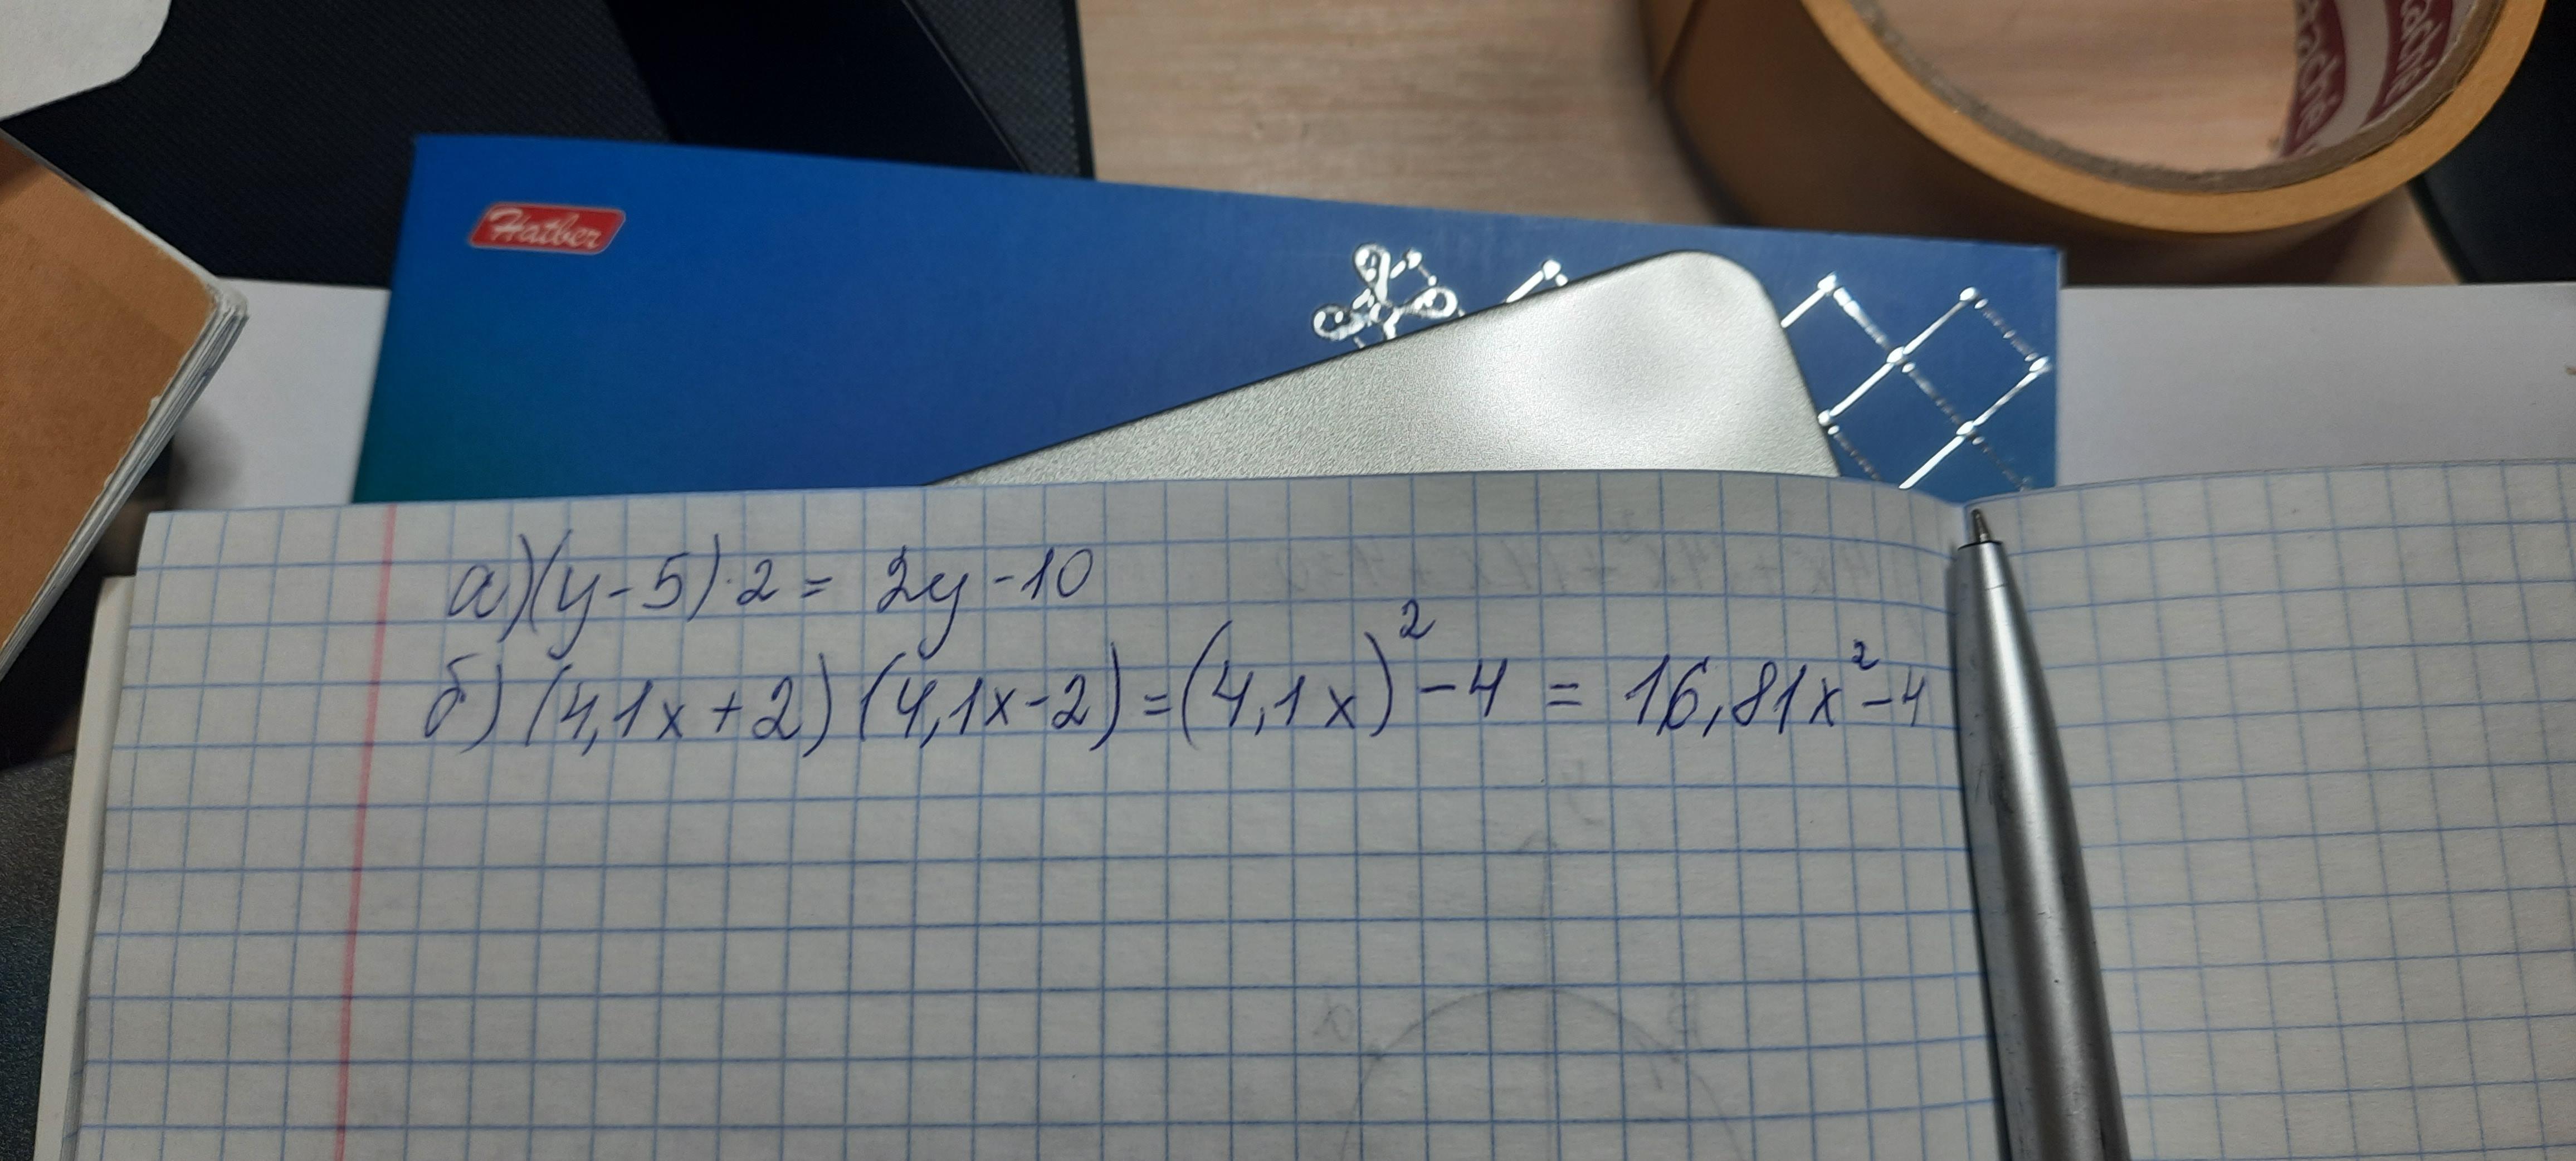 Hatber
а) (y-5)·2 = 2y-10
б) (4,1x+2)(4,1x-2)=(4,1x)²-4 = 16,81x²-4